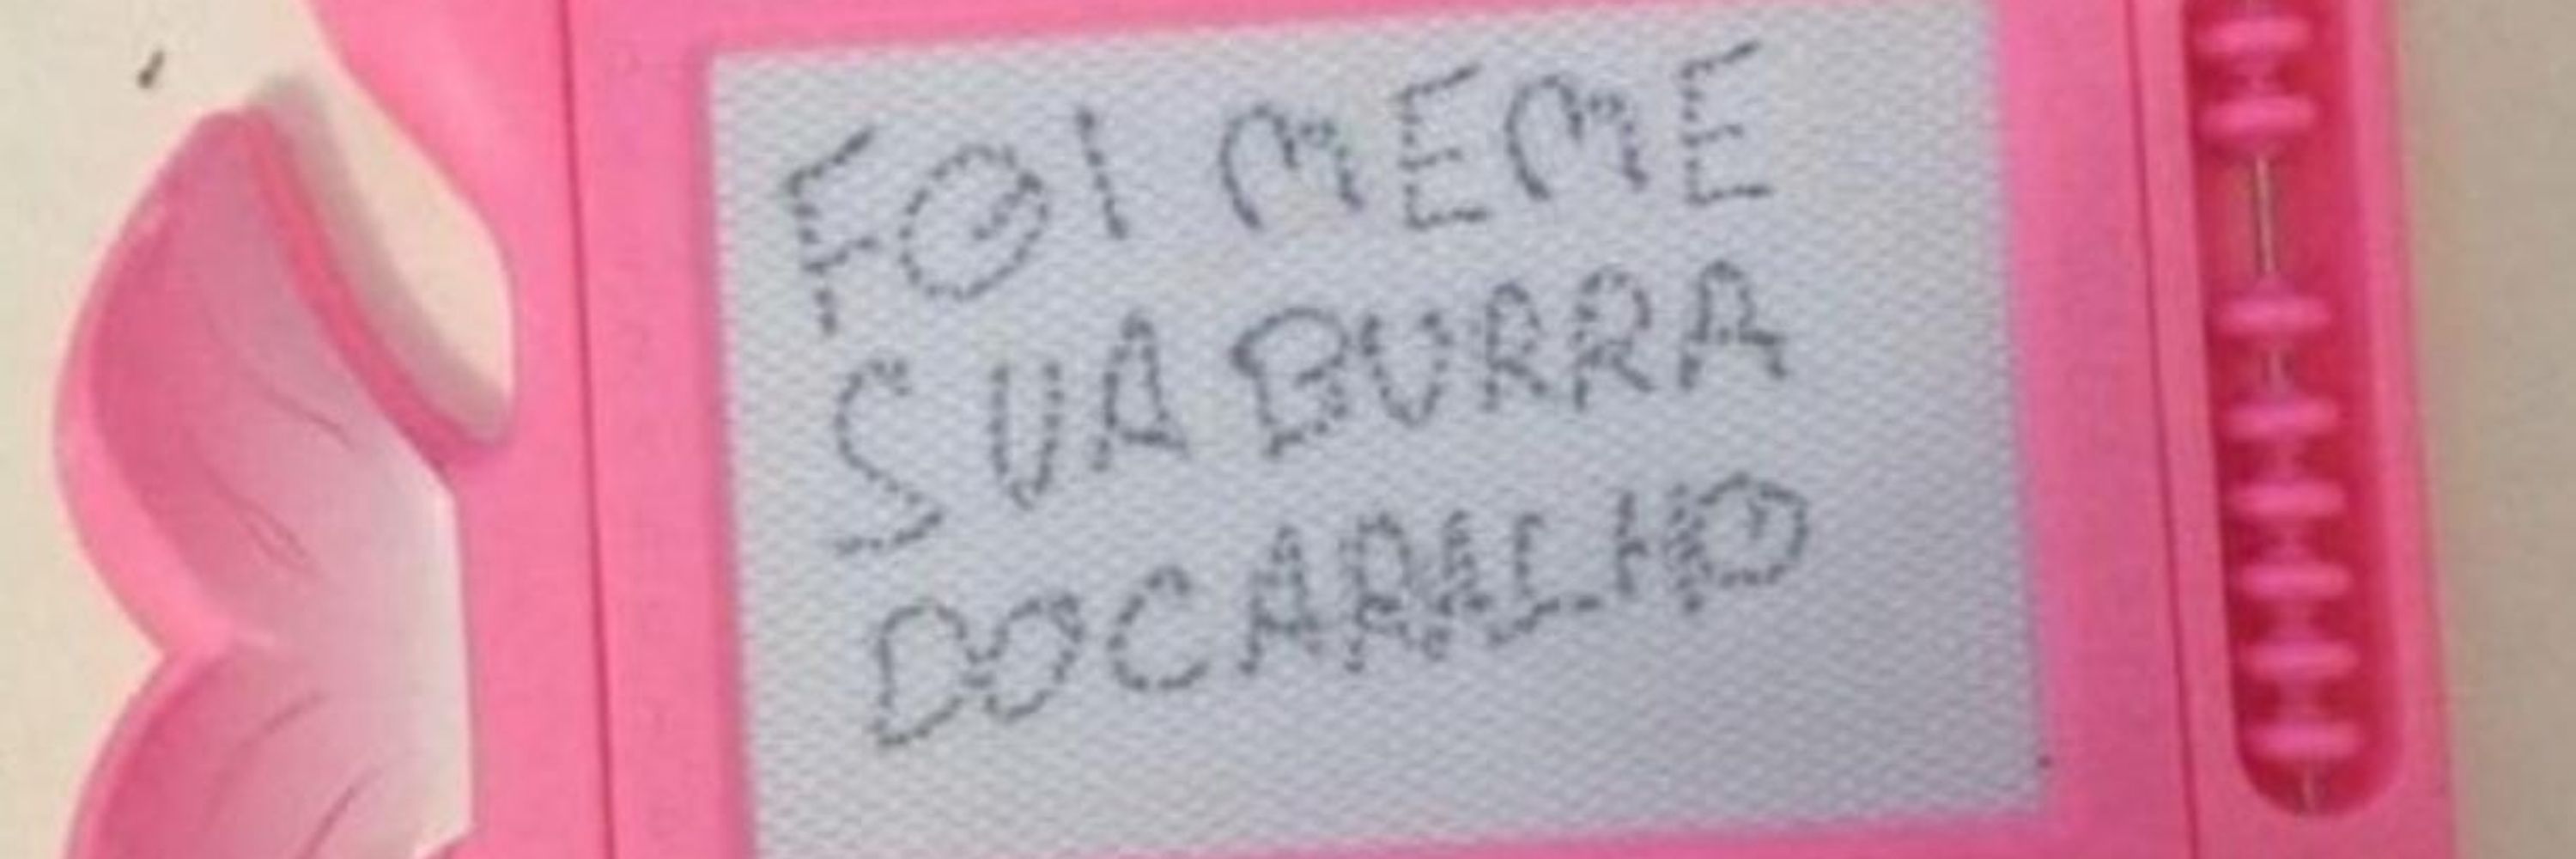 FOI MEME
SUA BURRA
DO CARALHO